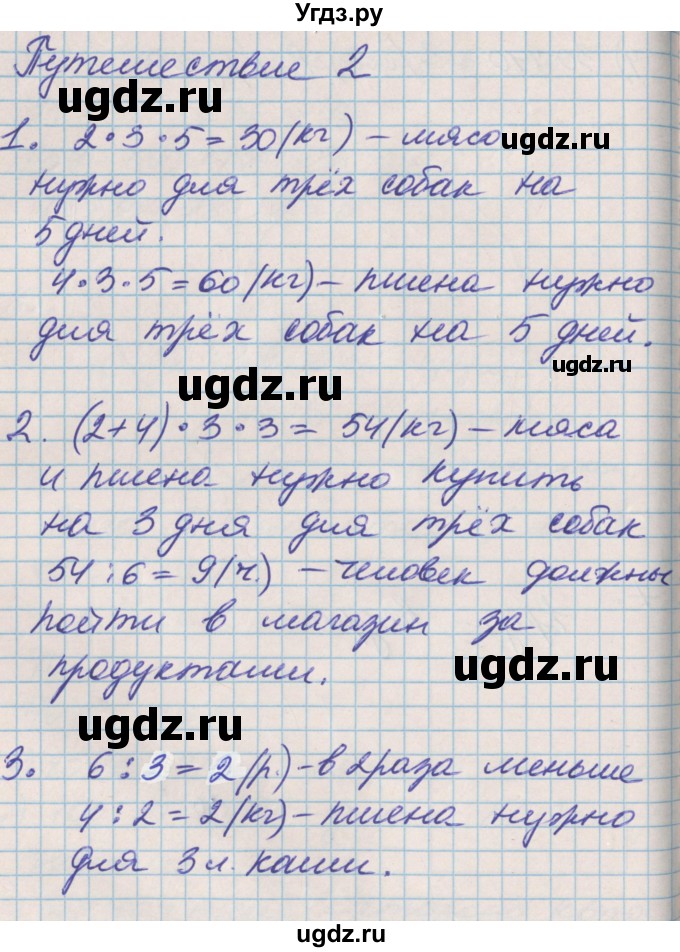 Угдз.ру
Путешествие 2
ugdz.ru
1. 2·3·5=30(кг) – мясо
ugdz.ru
нужно для трёх собак на
5 дней.
4·3·5=60(кг) – пшена нужно
для трёх собак на 5 дней.
ugdz.ru
ugdz.ru
2. (2+4)·3·3= 54(кг) – мяса
и пшена нужно купить
на 3 дня для трёх собак
54:6= 9(ч.) – человек должны
пойти в магазин за
продуктами.
ugdz.ru
ugdz.ru
3. 6:3=2(р.) – в 2раза меньше
4:2=2(кг) – пшена нужно
для 3 л. каши.
ugdz.ru